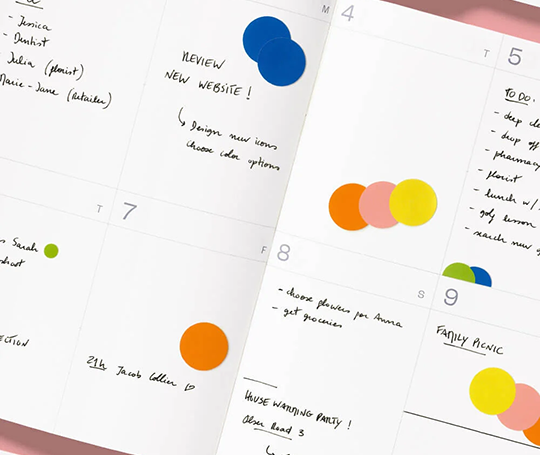 - Jessica
- Dentist
- Julia (florist)
Marie-Jane (retailer)
M
REVIEW
NEW WEBSITE !
↳ Design new icons
choose color options
4
T
5
TO DO:
- deep
- drop off
- pharmacy
- florist
- lunch w/
- golf lesson
- search new
T
Sarah
7
F
21h Jacob Collier ♡
8
S
- choose flowers for Anna
- get groceries
HOUSE WARMING PARTY !
Road 3
9
FAMILY PICNIC